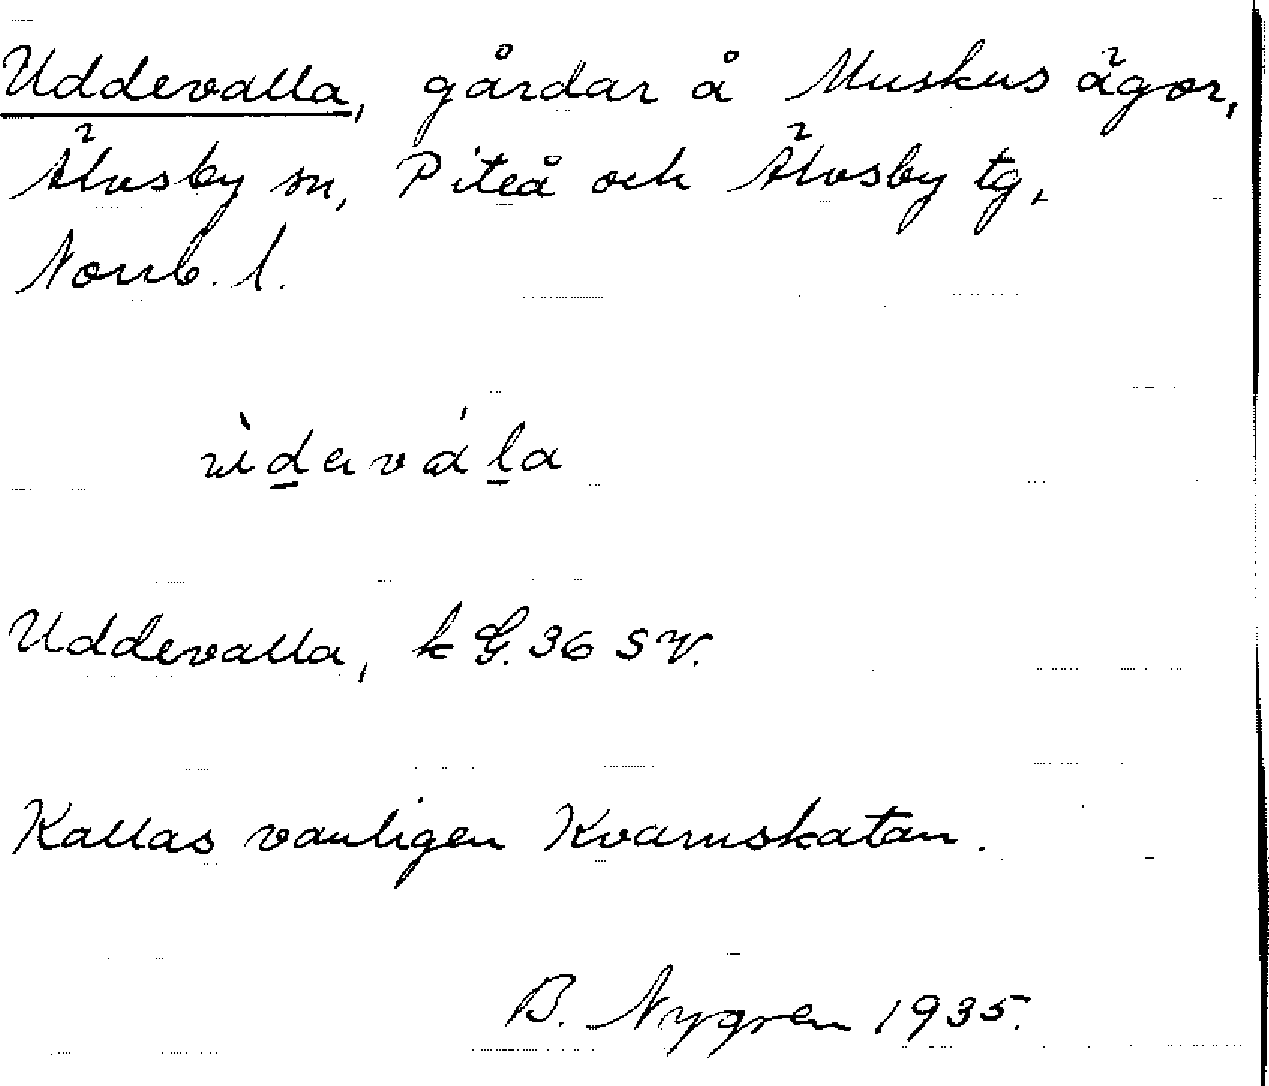 Uddevalla, gårdar å Muskus ägor,
Älvsby sn, Piteå och Älvsby tg,
Norrb. l.
Uddevalla, k G. 36 SV.
Kallas vanligen Kvarnskatan.
B. Nygren 1935.